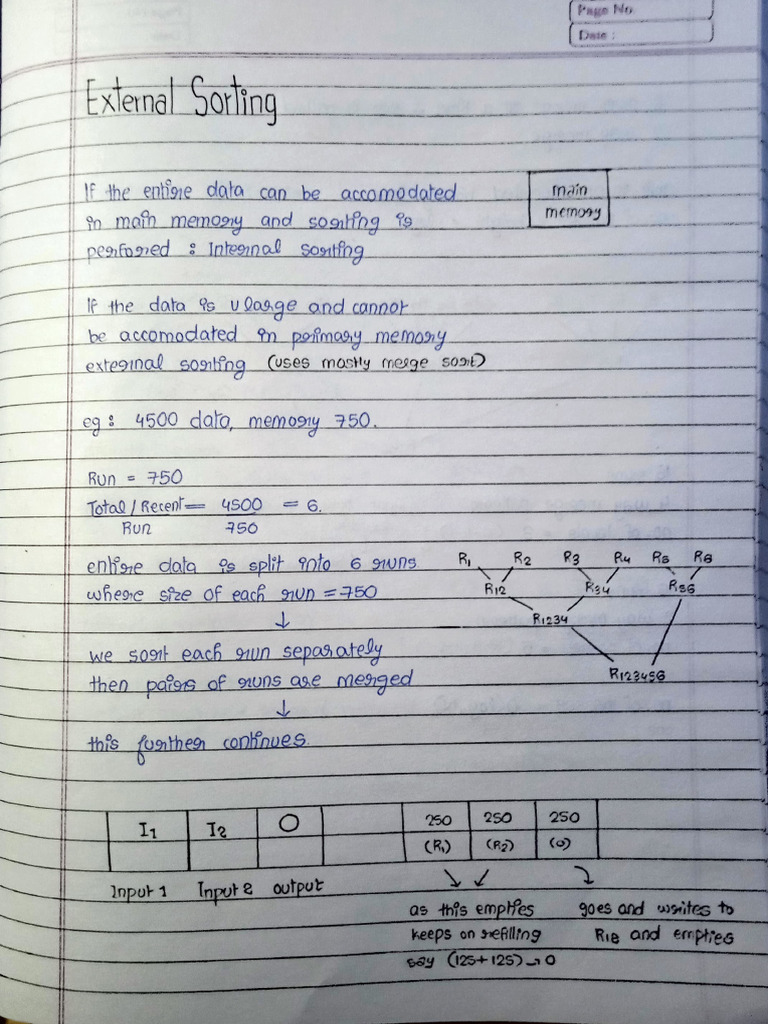 Page No.
Date :
External Sorting
If the entire data can be accomodated
in main memory and sorting is
perfored : Internal sorting
main
memory
If the data is v large and cannot
be accomodated in primary memory
external sorting (uses mostly merge sort)
eg: 4500 data, memory 750.
Run = 750
Total / Recent = 4500 = 6.
Run 750
entire data is split into 6 runs
where size of each run = 750
↓
we sort each run separately
then pairs of runs are merged
↓
this further continues.
R1 R2 R3 R4 R5 R6
R12 R34 R56
R1234
R123456
I1 I2 O 250 250 250
(R1) (R2) (O)
Input 1 Input 2 output
as this empties
keeps on refilling
say (125+125) → O
goes and writes to
R12 and empties